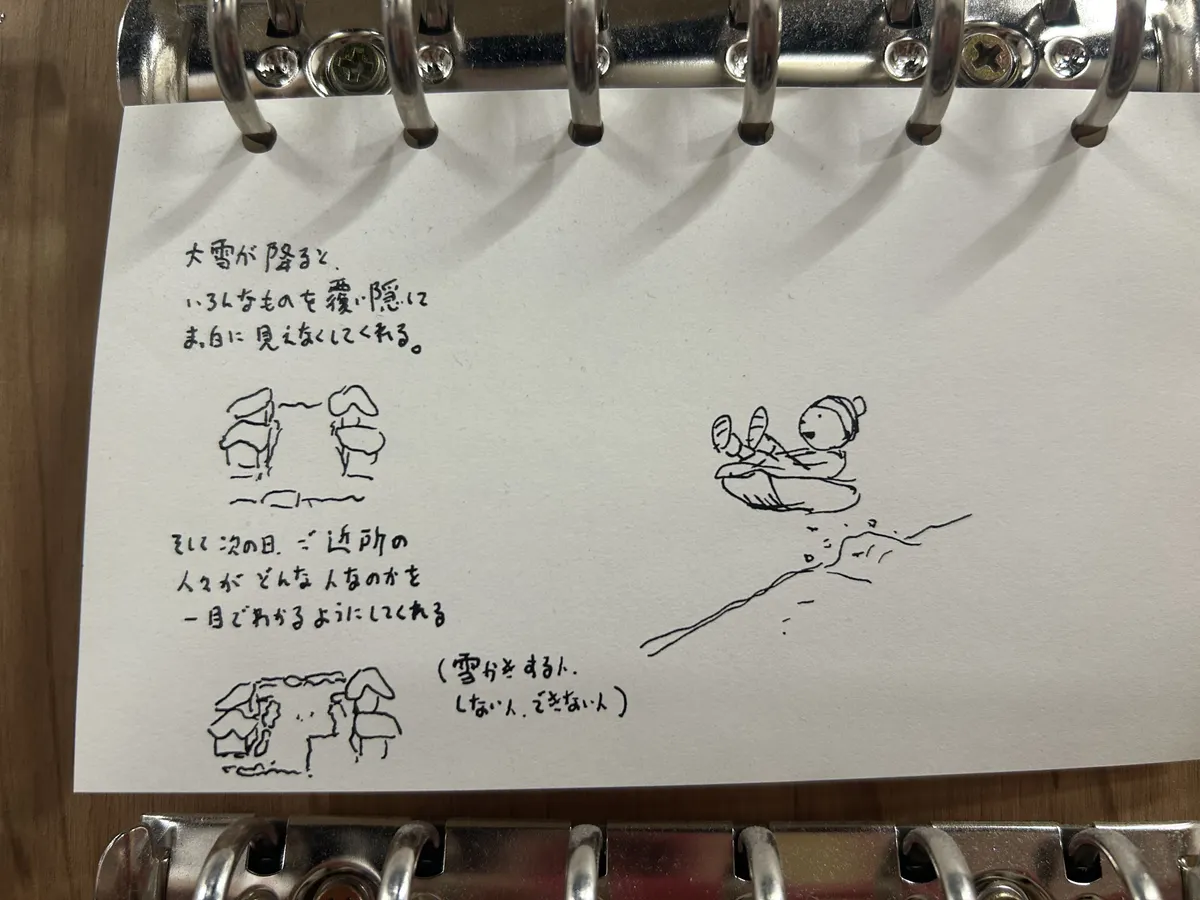 大雪が降ると、
いろんなものを覆い隠して
真白に見えなくしてくれる。
そして次の日、ご近所の
人々がどんな人なのかを
一目でわかるようにしてくれる
(雪かきする人、
しない人、できない人)